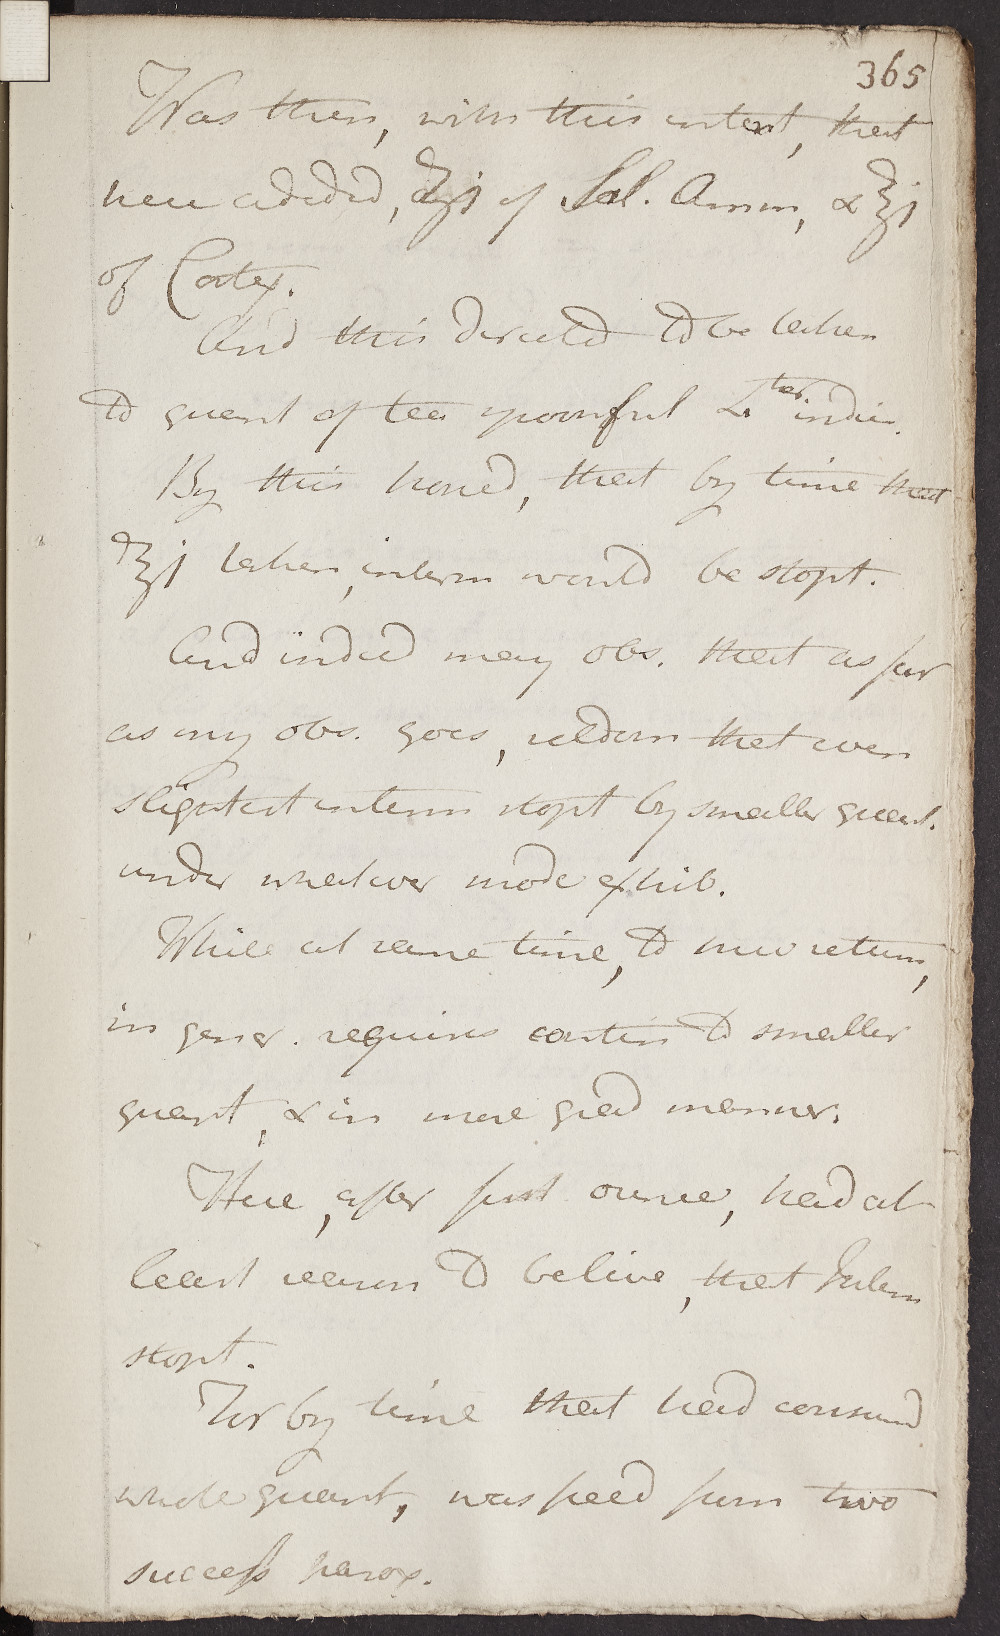 365
Was then, with this intent, that
here added, ʒj of Sal. Amm, & ℥j
of Cortex.
And this directed to be taken
to quant of tea spoonful 4ter indies.
By this hoped, that by time that
℥j taken, interm would be stopt.
And indeed may obs. that as far
as my obs. goes, seldom that even
slightest interm stopt by smaller quant.
under whatever mode exhib.
While at same time, to prev return,
in gener. requires contin to smaller
quant, & in more grad manner.
Here, after first ounce, had at
least reason to believe, that Interm
stopt.
For by time that had consumd
whole quant, was freed from two
success parox.